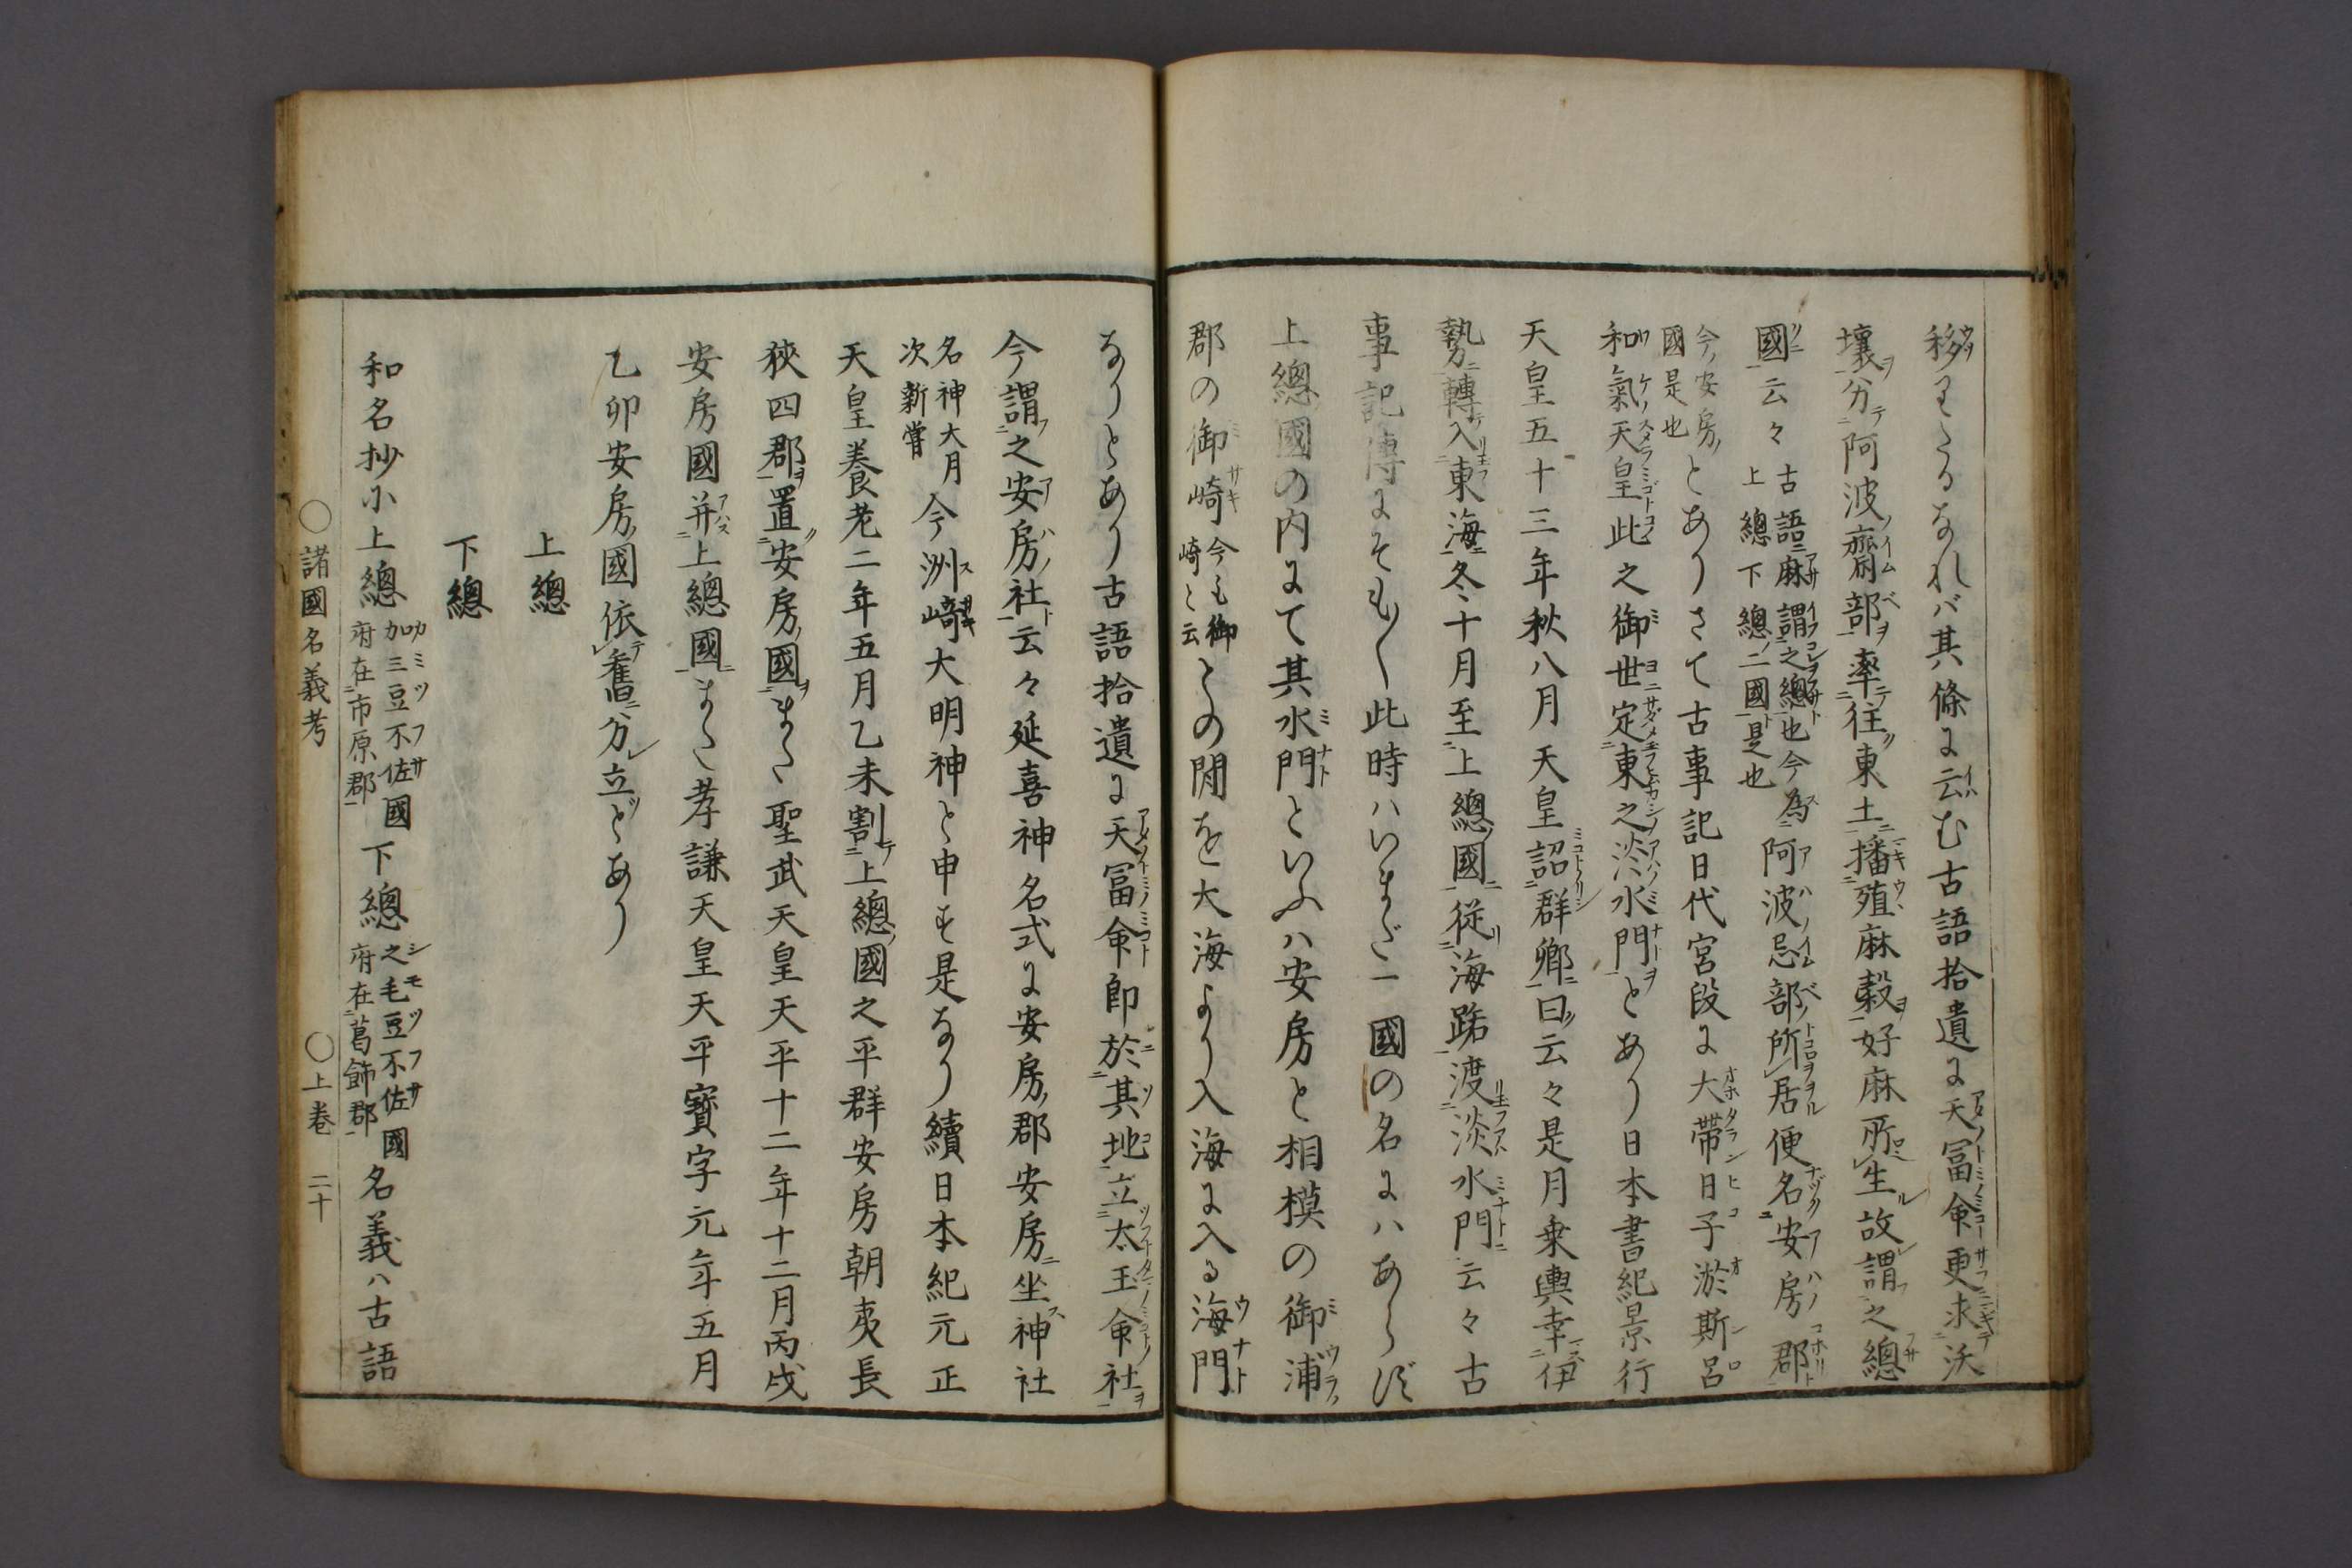 移りたるなれバ其條に云む古語拾遺に天冨命更求沃
壤分阿波齋部率往東土播殖麻穀好麻所生故謂之總
國云々古語麻謂之總也今為
上總下總二國是也
阿波忌部所居便名安房郡
今安房
國是也
とありさて古事記日代宮段に大帶日子淤斯呂
和氣天皇此之御世定東之淡水門とあり日本書紀景行
天皇五十三年秋八月天皇詔群卿曰云々是月乗輿幸伊
勢轉入東海冬十月至上總國従海路渡淡水門云々古
事記傳にそも〳〵此時ハいまだ一國の名にハあらず
上總國の内にて其水門といふハ安房と相模の御浦
郡の御崎今も御
崎と云
との間を大海より入海に入る海門
なりとあり古語拾遺に天冨命即於其地立太玉命社
今謂之安房社云々延喜神名式に安房郡安房坐神社
名神大月
次新嘗
今洲崎大明神と申す是なり續日本紀元正
天皇養老二年五月乙未割上總國之平群安房朝夷長
狹四郡置安房國また聖武天皇天平十二年十二月丙戌
安房國并上總國また孝謙天皇天平寳字元年五月
乙卯安房國依舊分立とあり
上總
下總
和名抄小上總加三豆不佐
府在市原郡
國下總之毛豆不佐
府在葛飾郡
國名義ハ古語
○諸國名義考 ○上巻 二十